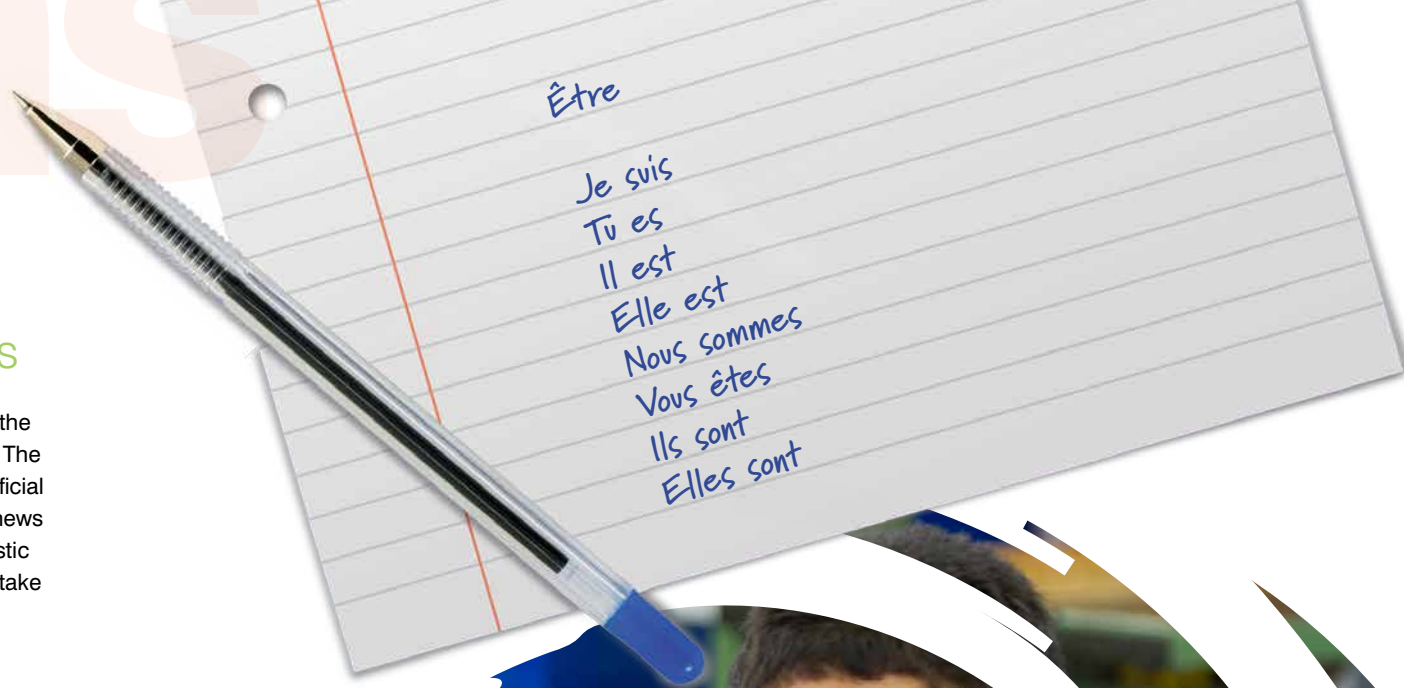 Être
Je suis
Tu es
Il est
Elle est
Nous sommes
Vous êtes
Ils sont
Elles sont
the
The
news
take